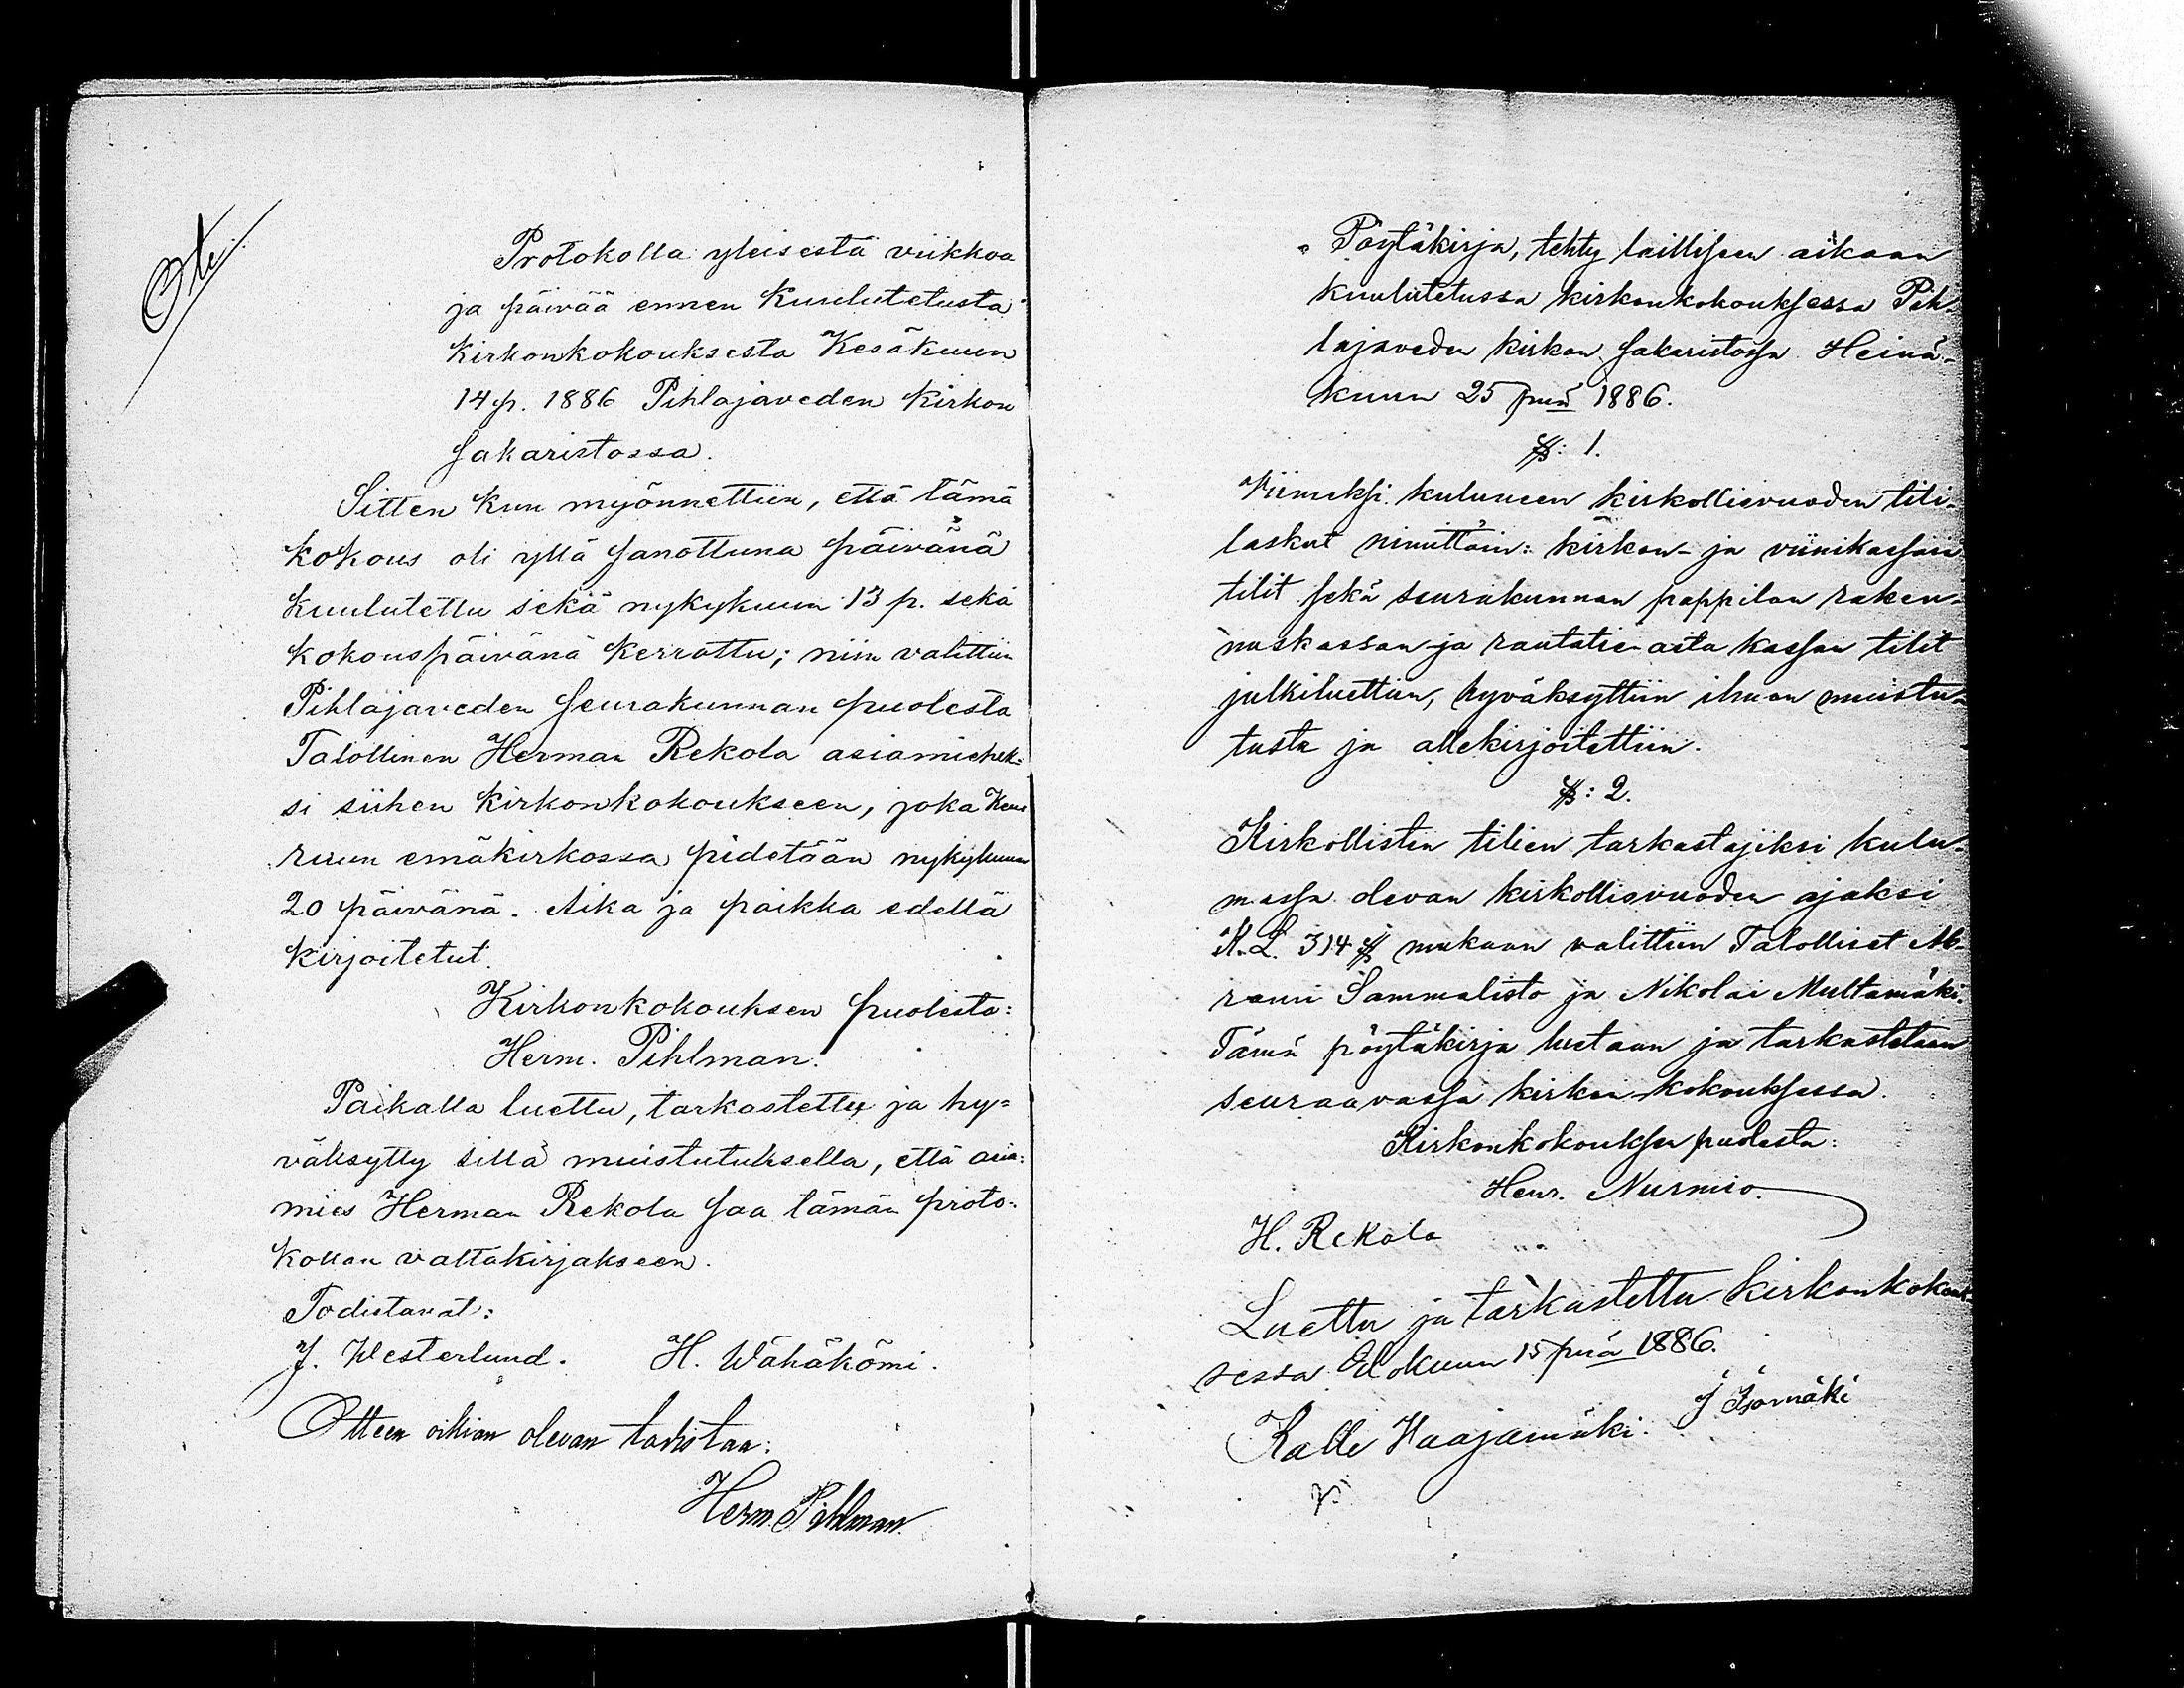 Ote
Protokolla yleisestä viikkoa
ja päivää ennen kuulutetusta
kirkonkokouksesta Kesäkuun
14 p. 1886 Pihlajaveden kirkon
sakaristossa.
Sitten kun myönnettiin, että tämä
kokous oli yllä sanottuna päivänä
kuulutettu sekä nykykuun 13 p. sekä
kokouspäivänä kerrattu; niin valittiin
Pihlajaveden seurakunnan puolesta
Talollinen Herman Rekola asiamiehek=
si siihen kirkonkokoukseen, joka Keu
ruun emäkirkossa pidetään nykykuun
20 päivänä. Aika ja paikka edellä
kirjoitetut.
Kirkonkokouksen puolesta:
Herm. Pihlman.
Paikalla luettu, tarkastettu ja hy=
väksytty sillä muistutuksella, että asia=
mies Herman Rekola saa tämän proto=
kollan valtakirjakseen.
Todistavat:
J. Westerlund. H. Wähäkömi.
Otteen oikian olevan todistaa:
Herm. Pihlman.
Pöytäkirja, tehty lailliseen aikaan
kuulutetussa kirkonkokouksessa Pih-
lajaveden kirkon sakaristossa Heinä-
kuun 25 pnä 1886.
§: 1.
Viimeksi kuluneen kirkollisvuoden tili-
laskut nimittäin: kirkon- ja viinikassan
tilit sekä seurakunnan pappilan raken-
nuskassan ja rautatie-aita kassan tilit
julkiluettiin, hyväksyttiin ilman muistu-
tusta ja allekirjoitettiin.
§: 2.
Kirkollisten tilien tarkastajiksi kulu-
massa olevan kirkollisvuoden ajaksi
K.L. 314 § mukaan valittiin Talolliset Ab-
rami Sammalisto ja Nikolai Multamäki.
Tämä pöytäkirja luetaan ja tarkastetaan
seuraavassa kirkon-kokouksessa.
Kirkonkokouksen puolesta:
Henr. Nurmio.
H. Rekola
Luettu ja tarkastettu kirkonkokouk-
sessa Elokuun 15 pnä 1886.
Kalle Haajamäki. J Isomäki